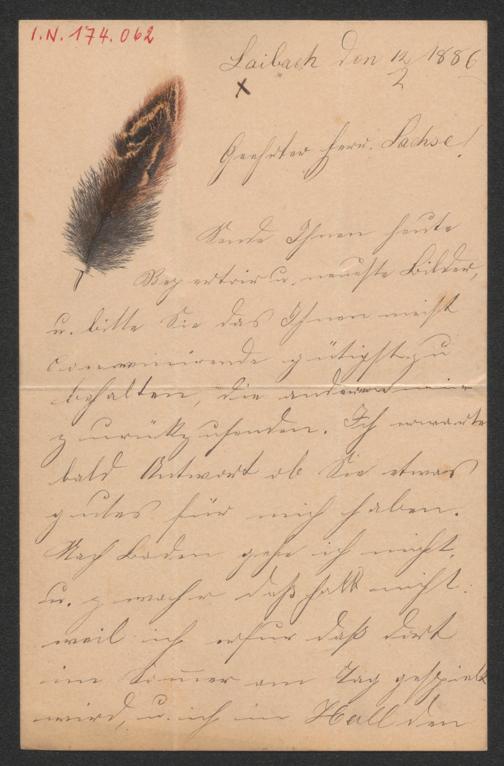 I.N. 174.062
Laibach den 12/2 1886
x
Geehrter Herr. Sachse!
Sende Ihnen heute
Repertoir u. neueste Bilder,
u. bitte Sie das Ihnen meist
convenirende gütigst zu
behalten, die anderen mir
zurückzusenden. Ich erwarte
bald Antwort ob Sie etwas
gutes für mich haben.
Nach Baden gehe ich nicht.
u. zwahr deßhalb nicht:
weil ich erfur daß dort
im Sommer am Tag gespielt
wird, u. ich im Hall den